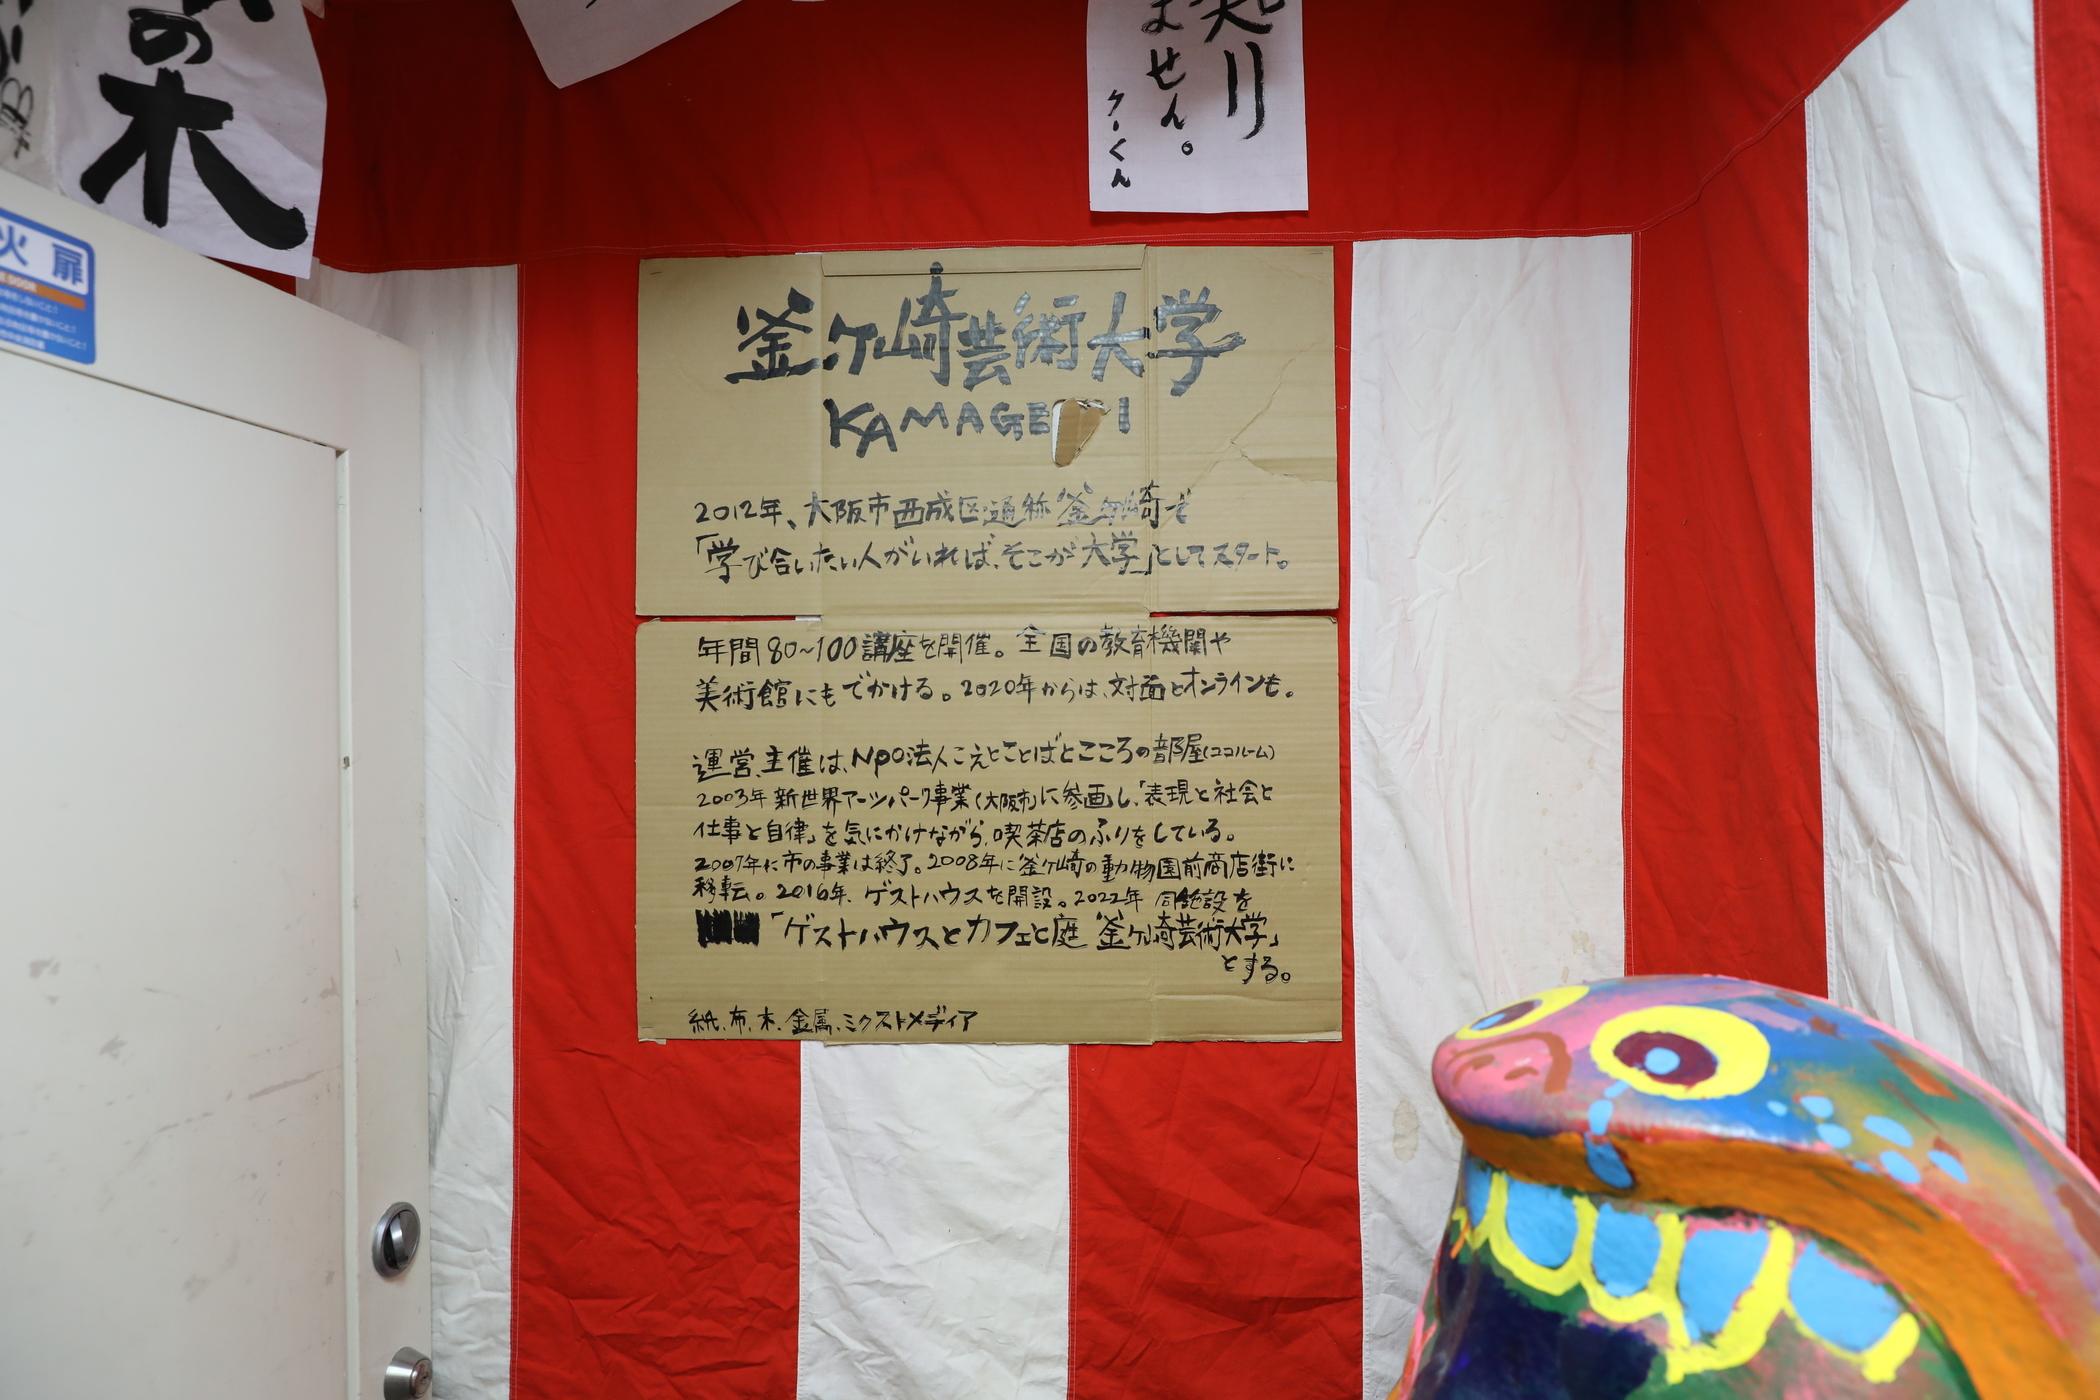 の木
火扉
ません。
くーくん
釜ヶ崎芸術大学
KAMAGE I
2012年、大阪市西成区通称釜ヶ崎で
「学び合いたい人がいれば、そこが大学」としてスタート。
年間80~100講座を開催。全国の教育機関や
美術館にもでかける。2020年からは、対面とオンラインも。
運営、主催は、NPO法人こえとことばとこころの部屋(ココルーム)
2003年新世界アーツパーク事業(大阪市)に参画し、「表現と社会と
仕事と自律」を気にかけながら、喫茶店のふりをしている。
2007年に市の事業は終了。2008年に釜ヶ崎の動物園前商店街に
移転。2016年、ゲストハウスを開設。2022年 同施設を
「ゲストハウスとカフェと庭 釜ヶ崎芸術大学」
とする。
紙、布、木、金属、ミクストメディア